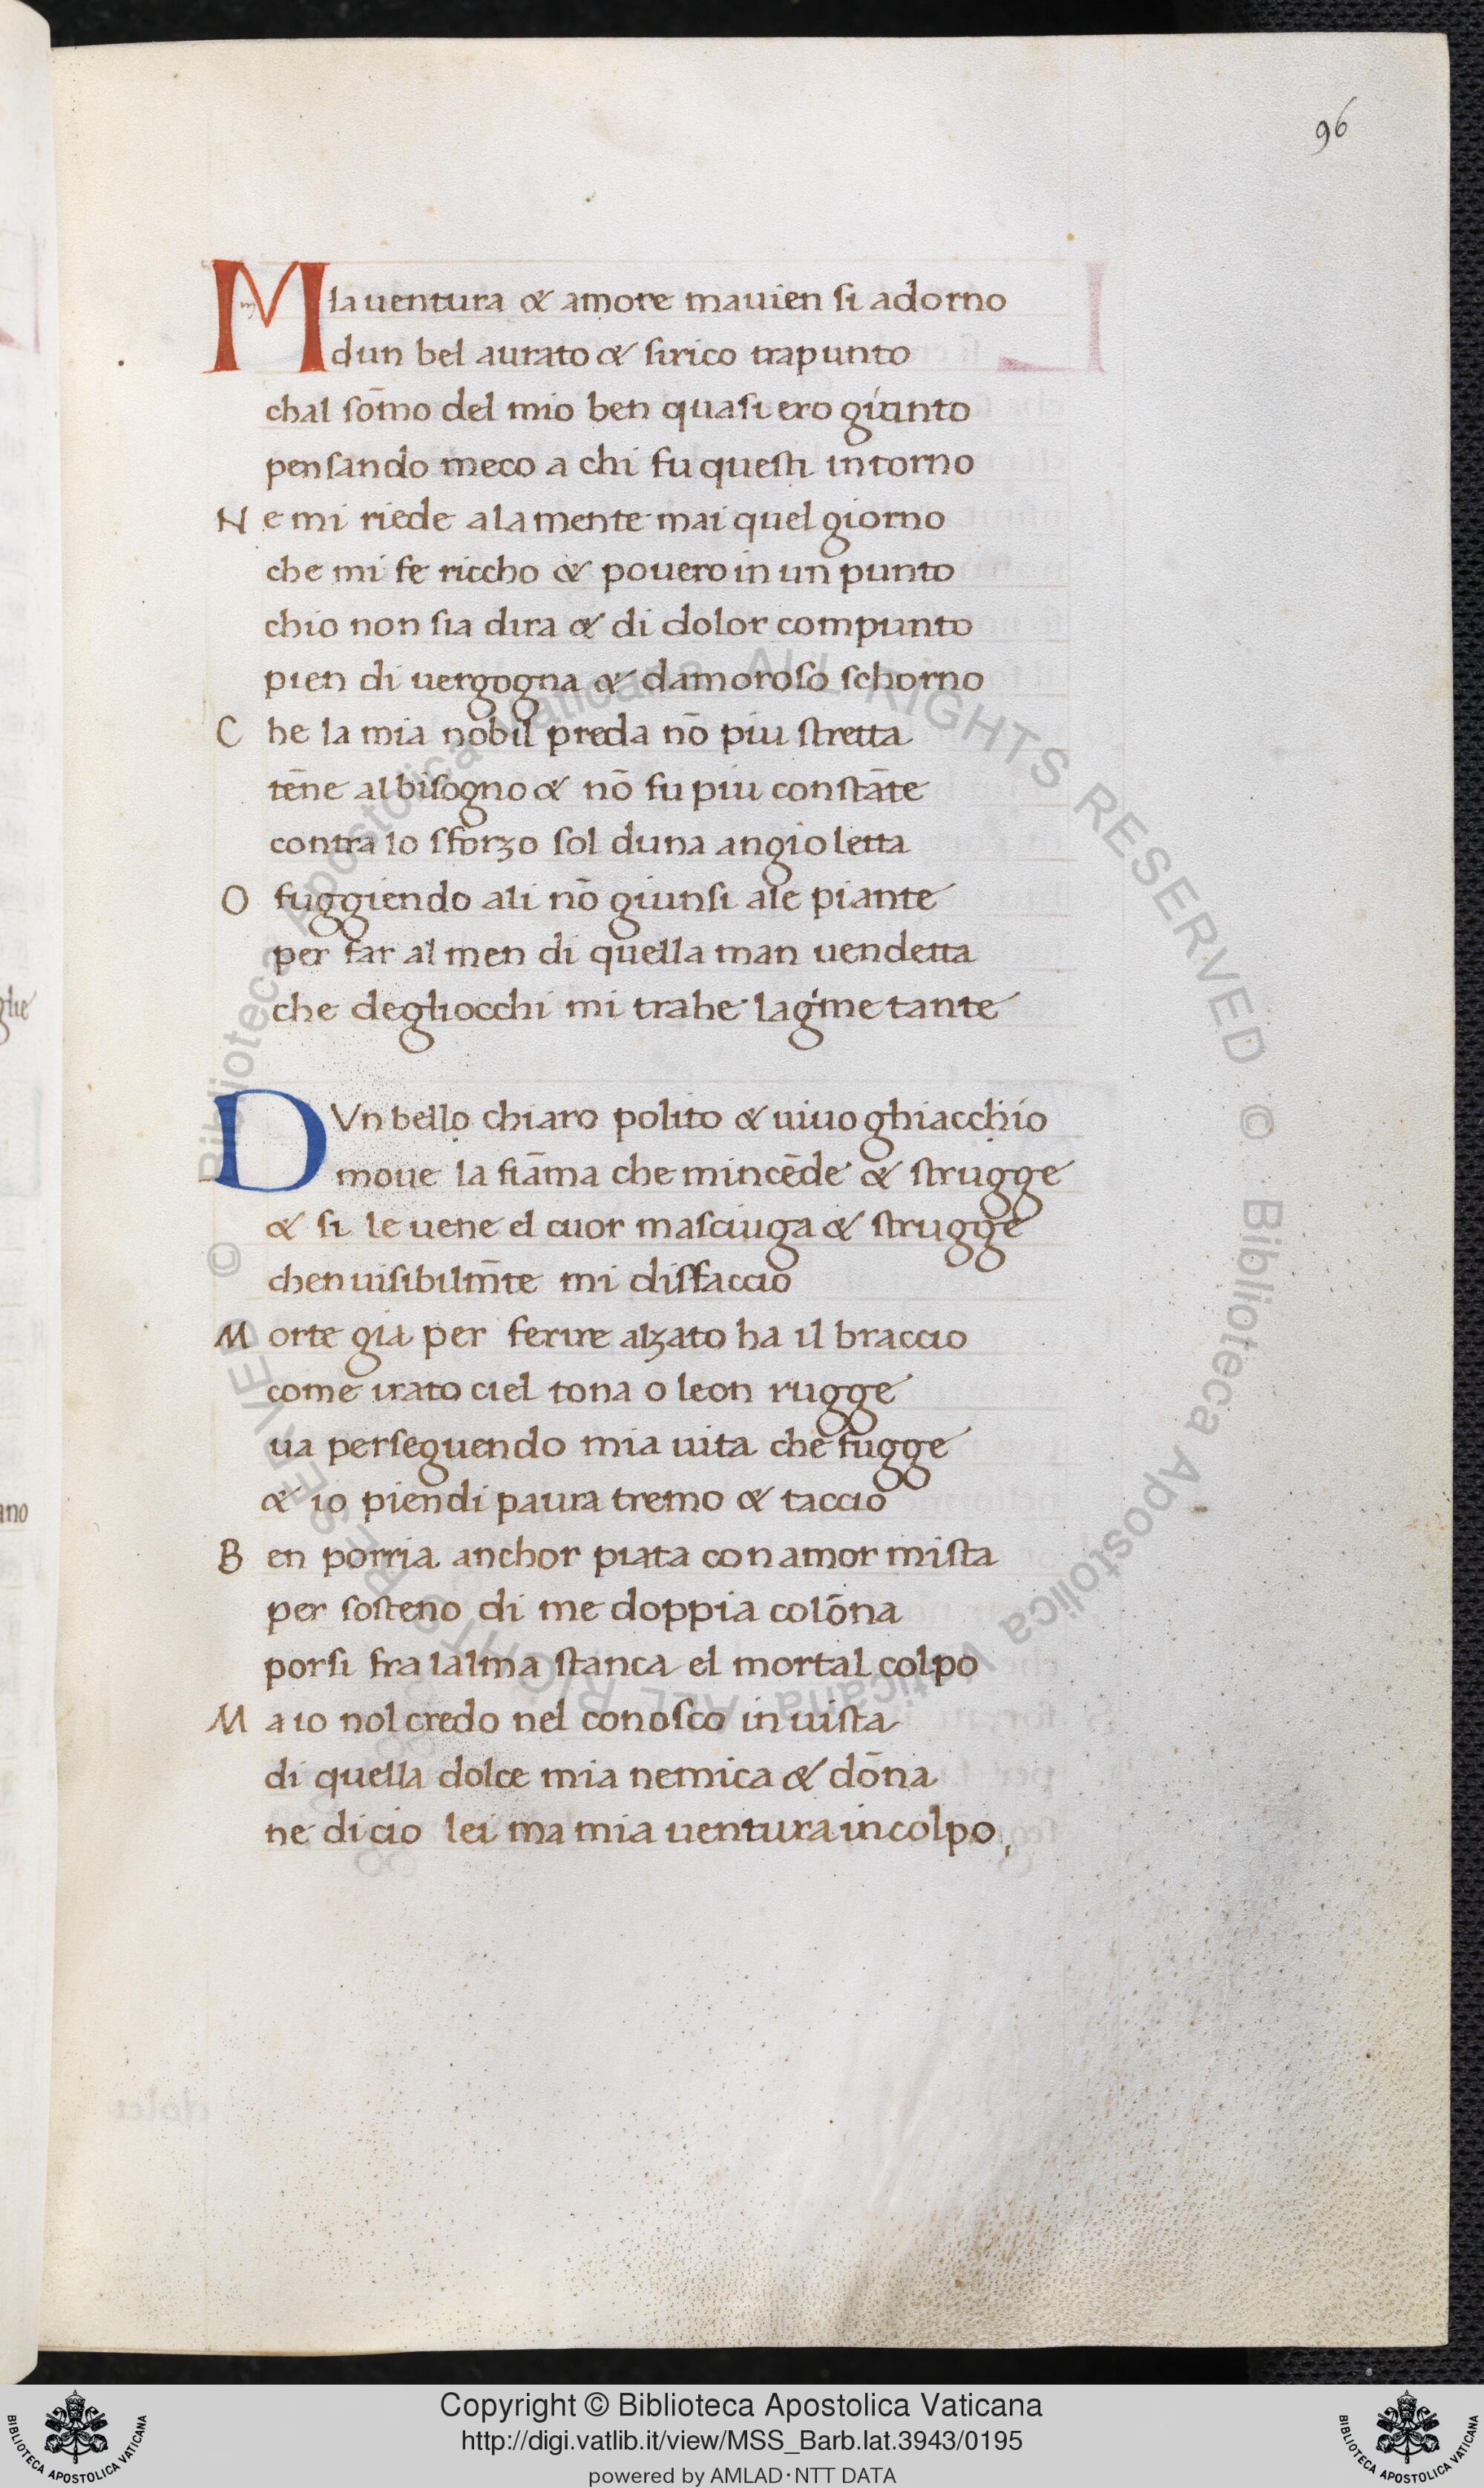 96
M Ia uentura & amore mauien si adorno
dun bel aurato & sirico trapunto
chal sōmo del mio ben quasi ero giunto
pensando meco a chi fu questi intorno
N e mi riede ala mente mai quel giorno
che mi fe riccho & pouero in un punto
chio non sia dira & di dolor compunto
pien di uergogna & damoroso schorno
C he la mia nobil preda nō piu stretta
tēne al bisogno & nō fu piu constāte
contra lo sforzo sol duna angioletta
O fuggiendo ali nō giunsi ale piante
per far almen di quella man uendetta
che degliocchi mi trahe lagͥme tante
D Vn bello chiaro polito & uiuo ghiacchio
moue la fiāma che mincēde & strugge
& si le uene el cuor masciuga & strugge
chenuisibilm̄te mi disfaccio
M orte gia per ferire alzato ha il braccio
come irato ciel tona o leon rugge
ua perseguendo mia uita che fugge
& io pien di paura tremo & taccio
B en porria anchor piata con amor mista
per sosteno di me doppia colōna
porsi fra lalma stanca el mortal colpo
M a io nol credo nel conosco in uista
di quella dolce mia nemica & dōna
ne di cio lei ma mia uentura incolpo
© Biblioteca Apostolica Vaticana ALL RIGHTS RESERVED © Biblioteca Apostolica Vaticana ALL RIGHTS RESERVED
BIBLIOTECA APOSTOLICA VATICANA
Copyright © Biblioteca Apostolica Vaticana
http://digi.vatlib.it/view/MSS_Barb.lat.3943/0195
powered by AMLAD·NTT DATA
BIBLIOTECA APOSTOLICA VATICANA